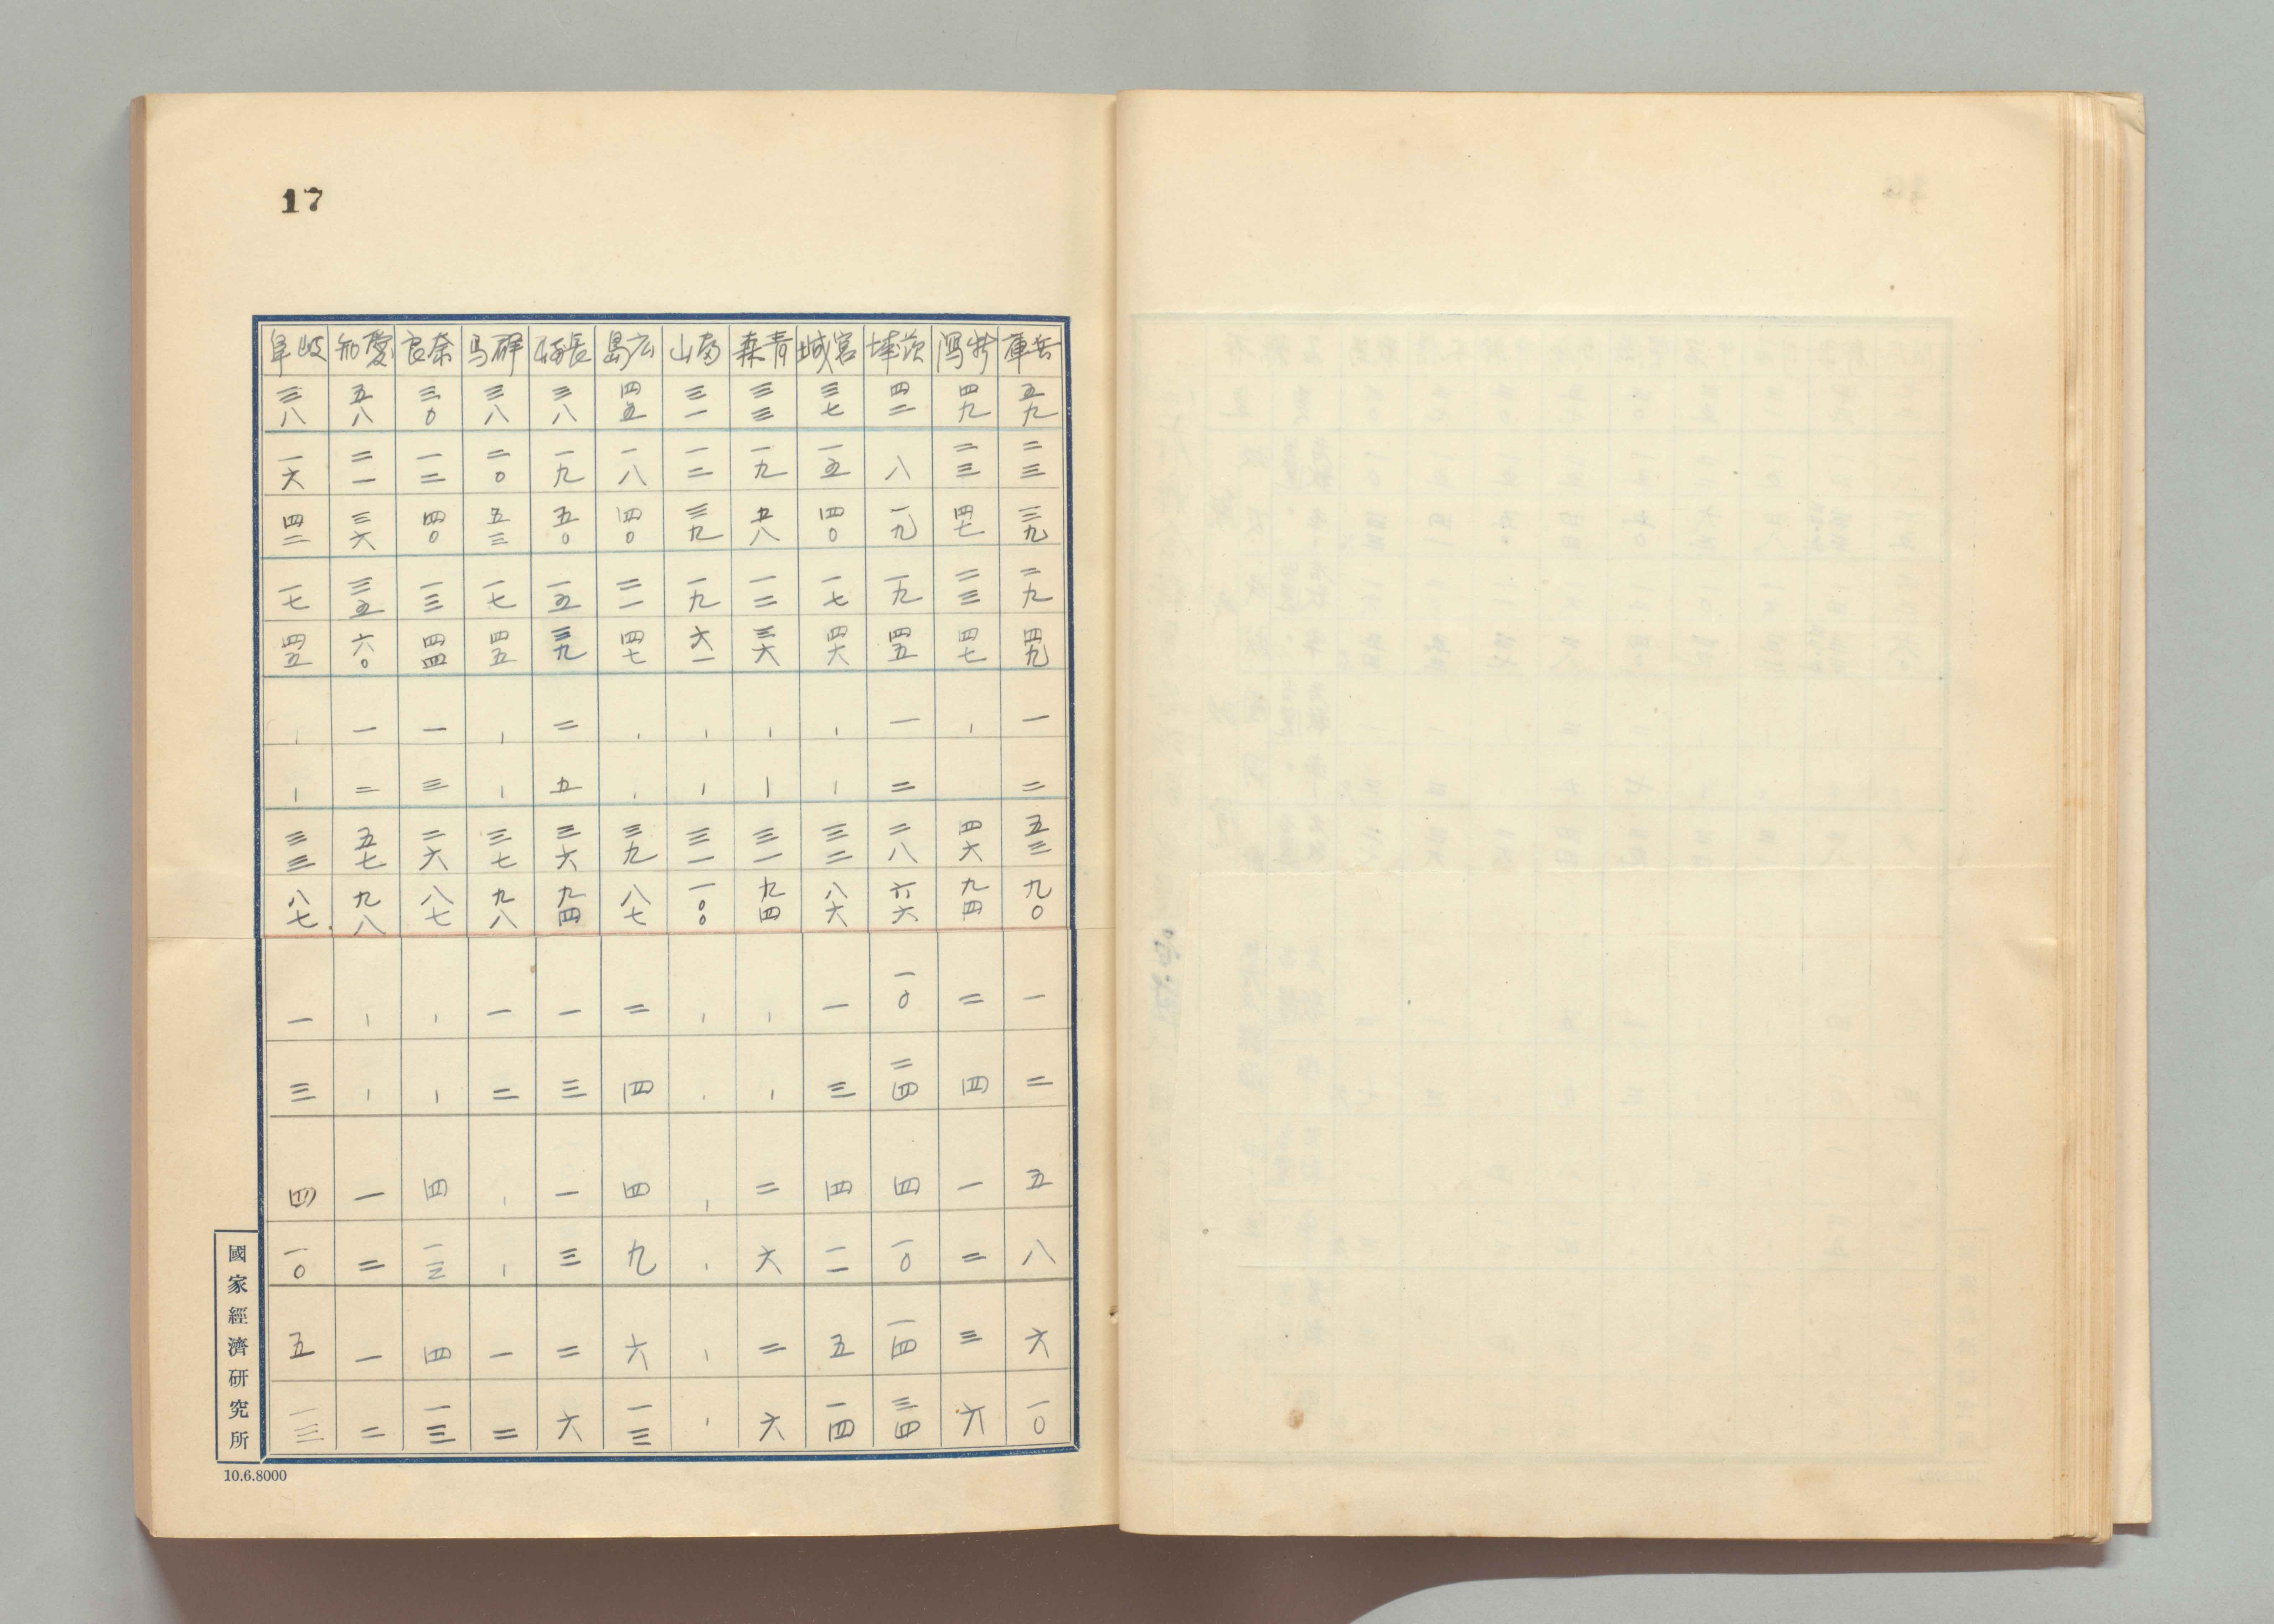 17
兵庫 五九 二三 三九 二九 四九 一 二 五三 九〇 一 二 五 八 六 一〇
新潟 四九 二三 四七 二三 四七 | 四六 九四 二 四 一 二 三 六
茨城 四二 八 一九 一九 四五 一 二 二八 六六 一〇 二四 四 一〇 一四 三四
宮城 三七 一五 四〇 一七 四六 | | 三二 八六 一 三 四 一一 五 一四
青森 三三 一九 五八 一二 三六 | | 三一 九四 | | 二 六 二 六
富山 三一 一二 三九 一九 六一 | | 三一 一〇〇 | | | | | |
広島 四五 一八 四〇 二一 四七 | | 三九 八七 二 四 四 九 六 一三
長崎 三八 一九 五〇 一五 三九 二 五 三六 九四 一 三 一 三 二 六
群馬 三八 二〇 五三 一七 四五 | | 三七 九八 一 二 | | 一 二
奈良 三〇 一二 四〇 一三 四四 一 三 二六 八七 | | 四 一三 四 一三
愛知 五八 二一 三六 三五 六〇 一 二 五七 九八 | | 一 二 一 二
岐阜 三八 一六 四二 一七 四五 | | 三三 八七 一 三 四 一〇 五 一三
國家經濟研究所
10.6.8000